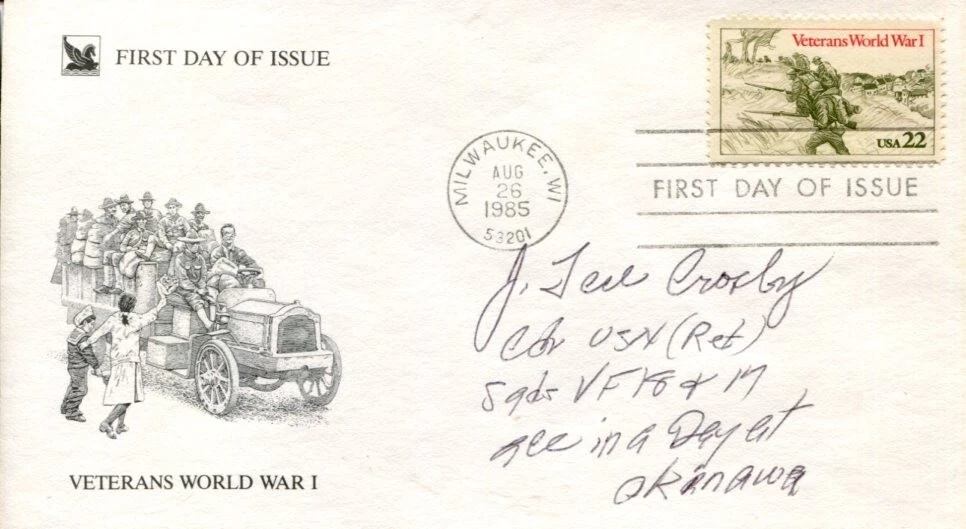 FIRST DAY OF ISSUE
Veterans World War I
USA 22
MILWAUKEE, WI
AUG
26
1985
53201
FIRST DAY OF ISSUE
J. Ted Crosby
Cdr USN (Ret)
Sqds VF 18 & 17
ace in a Day at
Okinawa
VETERANS WORLD WAR I